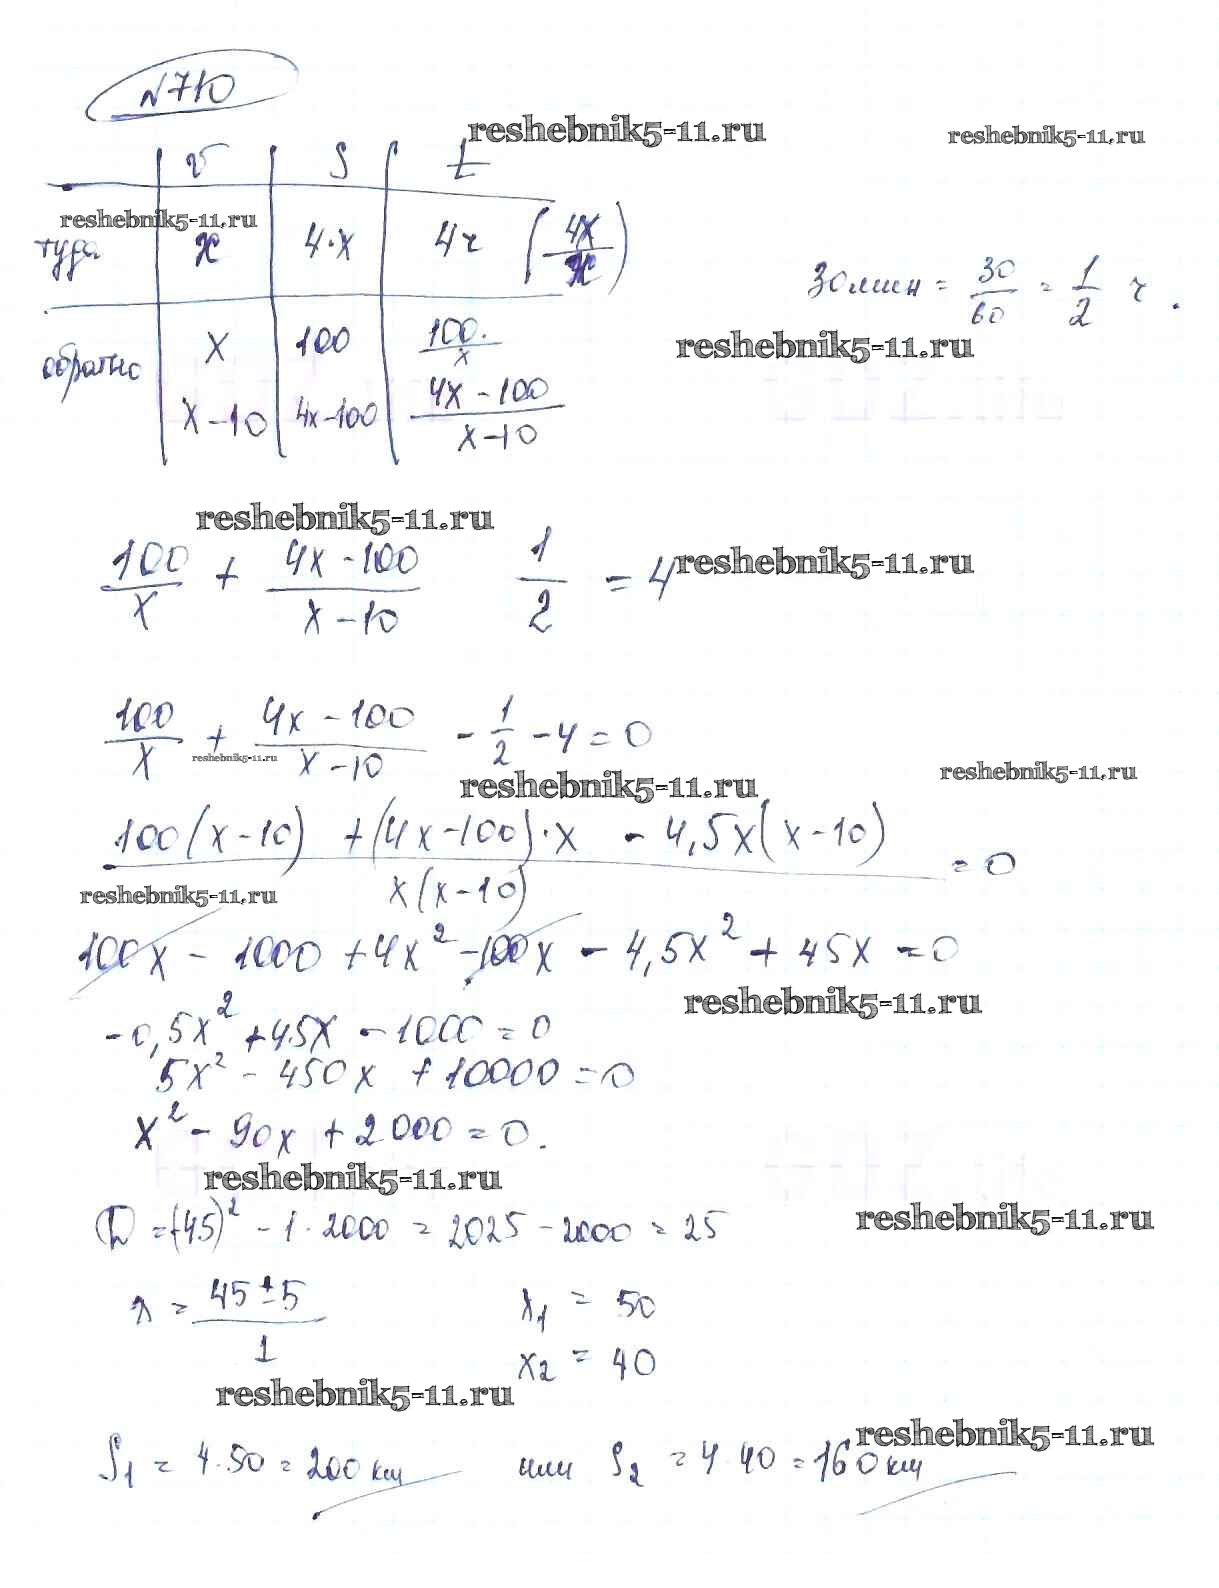 №710
reshebnik5-11.ru
reshebnik5-11.ru
v S t
reshebnik5-11.ru
туда x 4·x 4ч (4x/x)
30мин = 30/60 = 1/2 ч.
обратно x 100 100/x
reshebnik5-11.ru
x-10 4x-100 4x-100/x-10
reshebnik5-11.ru
100/x + 4x-100/x-10 1/2 = 4
reshebnik5-11.ru
100/x + 4x-100/x-10 - 1/2 - 4 = 0
reshebnik5-11.ru
reshebnik5-11.ru
reshebnik5-11.ru
100(x-10) + (4x-100)·x - 4,5x(x-10)/x(x-10) = 0
reshebnik5-11.ru
100x - 1000 + 4x² - 100x - 4,5x² + 45x = 0
reshebnik5-11.ru
-0,5x² + 45x - 1000 = 0
5x² - 450x + 10000 = 0
x² - 90x + 2000 = 0.
reshebnik5-11.ru
D = (-45)² - 1·2000 = 2025 - 2000 = 25
reshebnik5-11.ru
x = 45±5/1 x₁ = 50
x₂ = 40
reshebnik5-11.ru
reshebnik5-11.ru
S₁ = 4·50 = 200 км или S₂ = 4·40 = 160 км